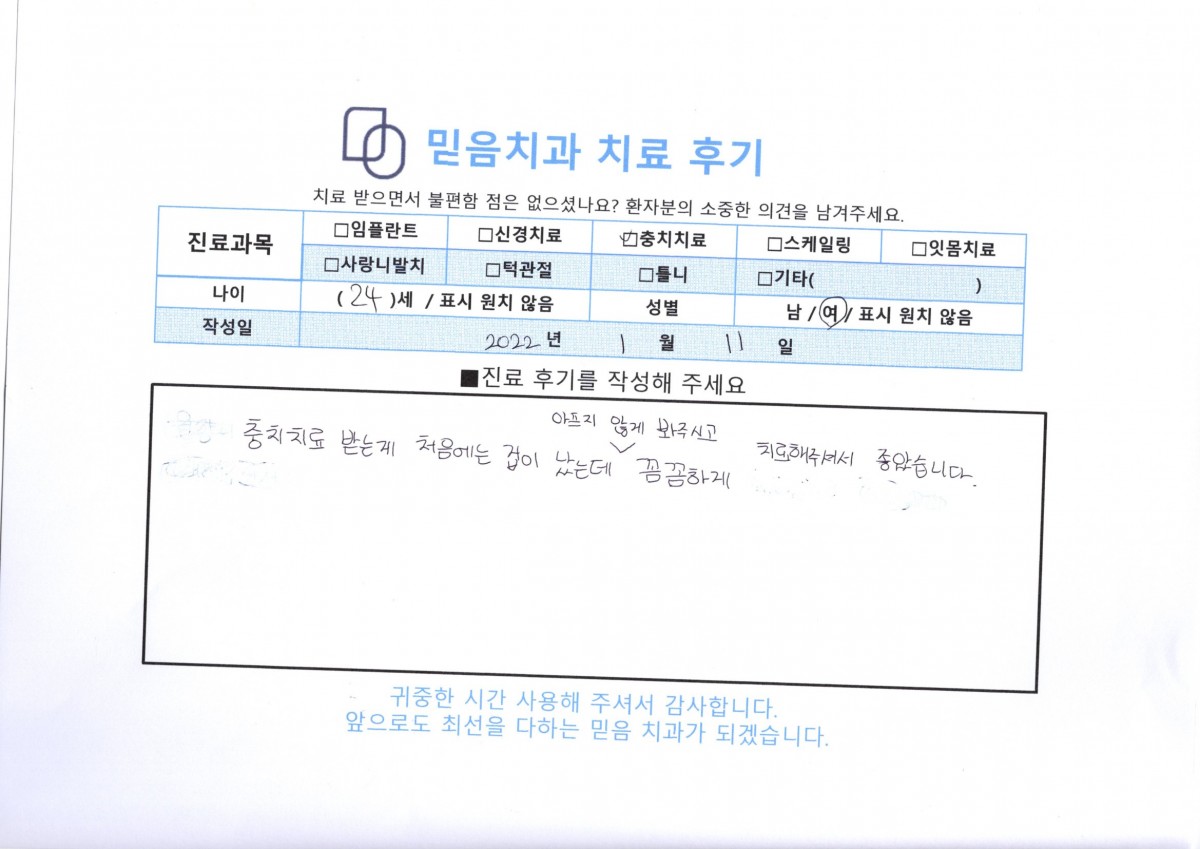 믿음치과 치료 후기
치료 받으면서 불편함 점은 없으셨나요? 환자분의 소중한 의견을 남겨주세요.
진료과목 □임플란트 □신경치료 ☑충치치료 □스케일링 □잇몸치료
□사랑니발치 □턱관절 □틀니 □기타( )
나이 ( 24 )세 / 표시 원치 않음 성별 남 / 여 / 표시 원치 않음
작성일 2022 년 1 월 11 일
■진료 후기를 작성해 주세요
아프지 않게 봐주시고
충치치료 받는게 처음에는 겁이 났는데 꼼꼼하게 치료해주셔서 좋았습니다.
귀중한 시간 사용해 주셔서 감사합니다.
앞으로도 최선을 다하는 믿음 치과가 되겠습니다.